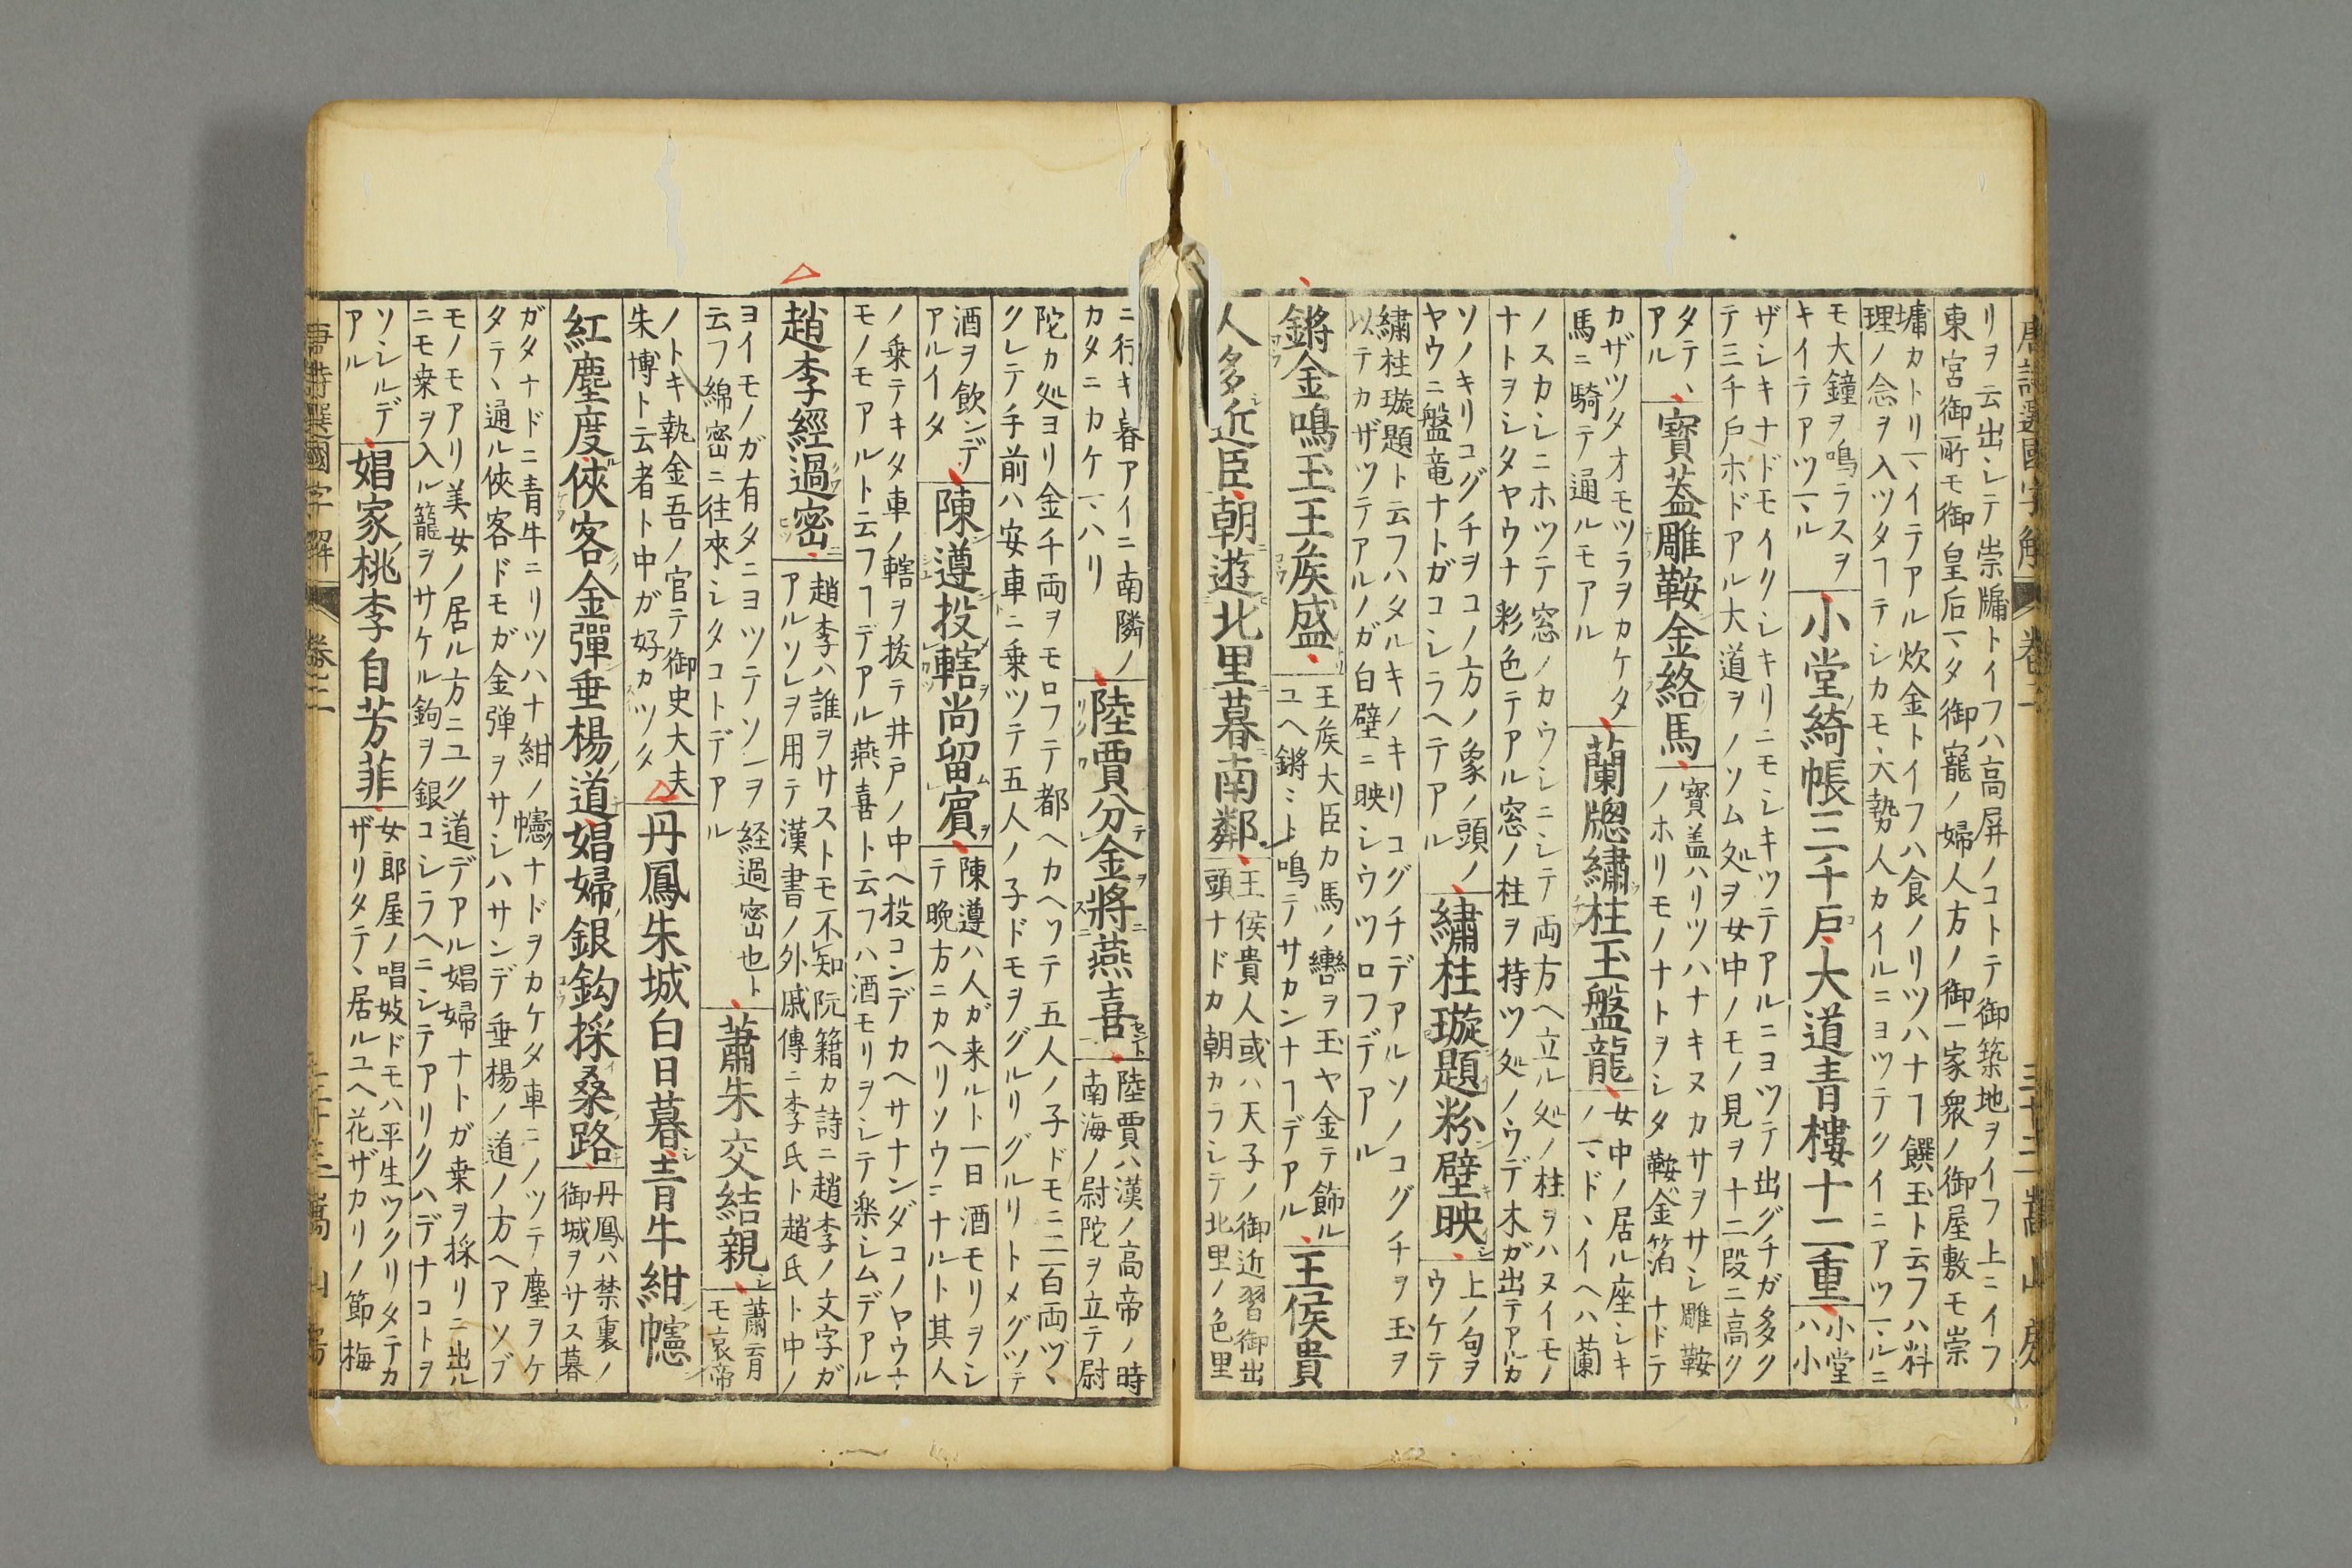 唐詩選國字解 卷二 三十三 嵩山房
リヲ云出シテ崇牖トイフハ高屏ノコトテ御築地ヲイフ上ニイフ
東宮御所モ御皇后マタ御寵ノ婦人方ノ御一家衆ノ御屋敷モ崇
墉カトリマイテアル炊金トイフハ食ノリツハナヿ饌玉ト云フハ料
理ノ念ヲ入ツタヿテシカモ大勢人カイルニヨツテクイニアツマルニ
モ大鐘ヲ鳴ラスヲ
キイテアツマル
小堂綺帳三千戸大道青樓十二重
小堂
ハ小
ザシキナドモイクシキリニモシキツテアルニヨツテ出グチガ多ク
テ三千戸ホドアル大道ヲノソム処ヲ女中ノモノ見ヲ十二段ニ高ク
タテヽ
アル
寶葢雕鞍金絡馬
寶盖ハリツハナキヌカサヲサシ雕鞍
ノホリモノナトヲシタ鞍金箔ナドテ
カザツタオモツラヲカケタ
馬ニ騎テ通ルモアル
蘭牕繡柱玉盤龍
女中ノ居ル座シキ
ノマドヽイヘハ蘭
ノスカシニホツテ窓ノカウシニシテ両方ヘ立ル処ノ柱ヲハヌイモノ
ナトヲシタヤウナ彩色テアル窓ノ柱ヲ持ツ処ノウデ木ガ出テアルカ
ソノキリコグチヲコノ方ノ象ノ頭ノ
ヤウニ盤竜ナトガコシラヘテアル
繡柱璇題粉壁映
上ノ句ヲ
ウケテ
繡柱璇題ト云フハタルキノキリコグチデアルソノコグチヲ玉ヲ
以テカザツテアルノガ白壁ニ映シウツロフデアル
鏘金鳴玉王矦盛
王矦大臣カ馬ノ轡ヲ玉ヤ金テ飾ル
ユヘ鏘〻ト鳴テサカンナヿデアル
王侯貴
人多近臣朝遊北里暮南鄰
王侯貴人或ハ天子ノ御近習御出
頭ナドカ朝カラシテ北里ノ色里
ニ行キ暮アイニ南隣ノ
カタニカケマハリ
陸賈分金將燕喜
陸賈ハ漢ノ高帝ノ時
南海ノ尉陀ヲ立テ尉
陀カ処ヨリ金千両ヲモロフテ都ヘカヘツテ五人ノ子ドモニ二百両ヅヽ
クレテ手前ハ安車ニ乗ツテ五人ノ子ドモヲグルリグルリトメグツテ
酒ヲ飲ンデ
アルイタ
陳遵投轄尚留賓
陳遵ハ人ガ来ルト一日酒モリヲシ
テ晩方ニカヘリソウニナルト其人
ノ乗テキタ車ノ轄ヲ抜テ井戸ノ中ヘ投コンデカヘサナンダコノヤウナ
モノモアルト云フヿデアル燕喜ト云フハ酒モリヲシテ楽シムデアル
趙李經過密
趙李ハ誰ヲサストモ不知阮籍カ詩ニ趙李ノ文字ガ
アルソレヲ用テ漢書ノ外戚傳ニ李氏ト趙氏ト中ノ
ヨイモノガ有タニヨツテソレヲ経過密也ト
云フ綿密ニ往來シタコトデアル
蕭朱交結親
蕭育
モ哀帝
ノトキ執金吾ノ官テ御史大夫
朱博ト云者ト中ガ好カツタ
丹鳳朱城白日暮青牛紺幰
紅塵度俠客金彈垂楊道娼婦銀鈎採桑路
丹鳳ハ禁裏ノ
御城ヲサス暮
ガタナドニ青牛ニリツハナ紺ノ幰ナドヲカケタ車ニノツテ塵ヲケ
タテヽ通ル俠客ドモガ金弾ヲサシハサンデ垂楊ノ道ノ方ヘアソブ
モノモアリ美女ノ居ル方ニユク道デアル娼婦ナトガ桒ヲ採リニ出ル
ニモ桒ヲ入ル籠ヲサケル鉤ヲ銀コシラヘニシテアリクハデナコトヲ
ソシルデ
アル
娼家桃李自芳菲
女郎屋ノ唱妓ドモハ平生ツクリタテカ
ザリタテヽ居ルユヘ花ザカリノ節梅
唐詩選國字解 卷二 嵩山房